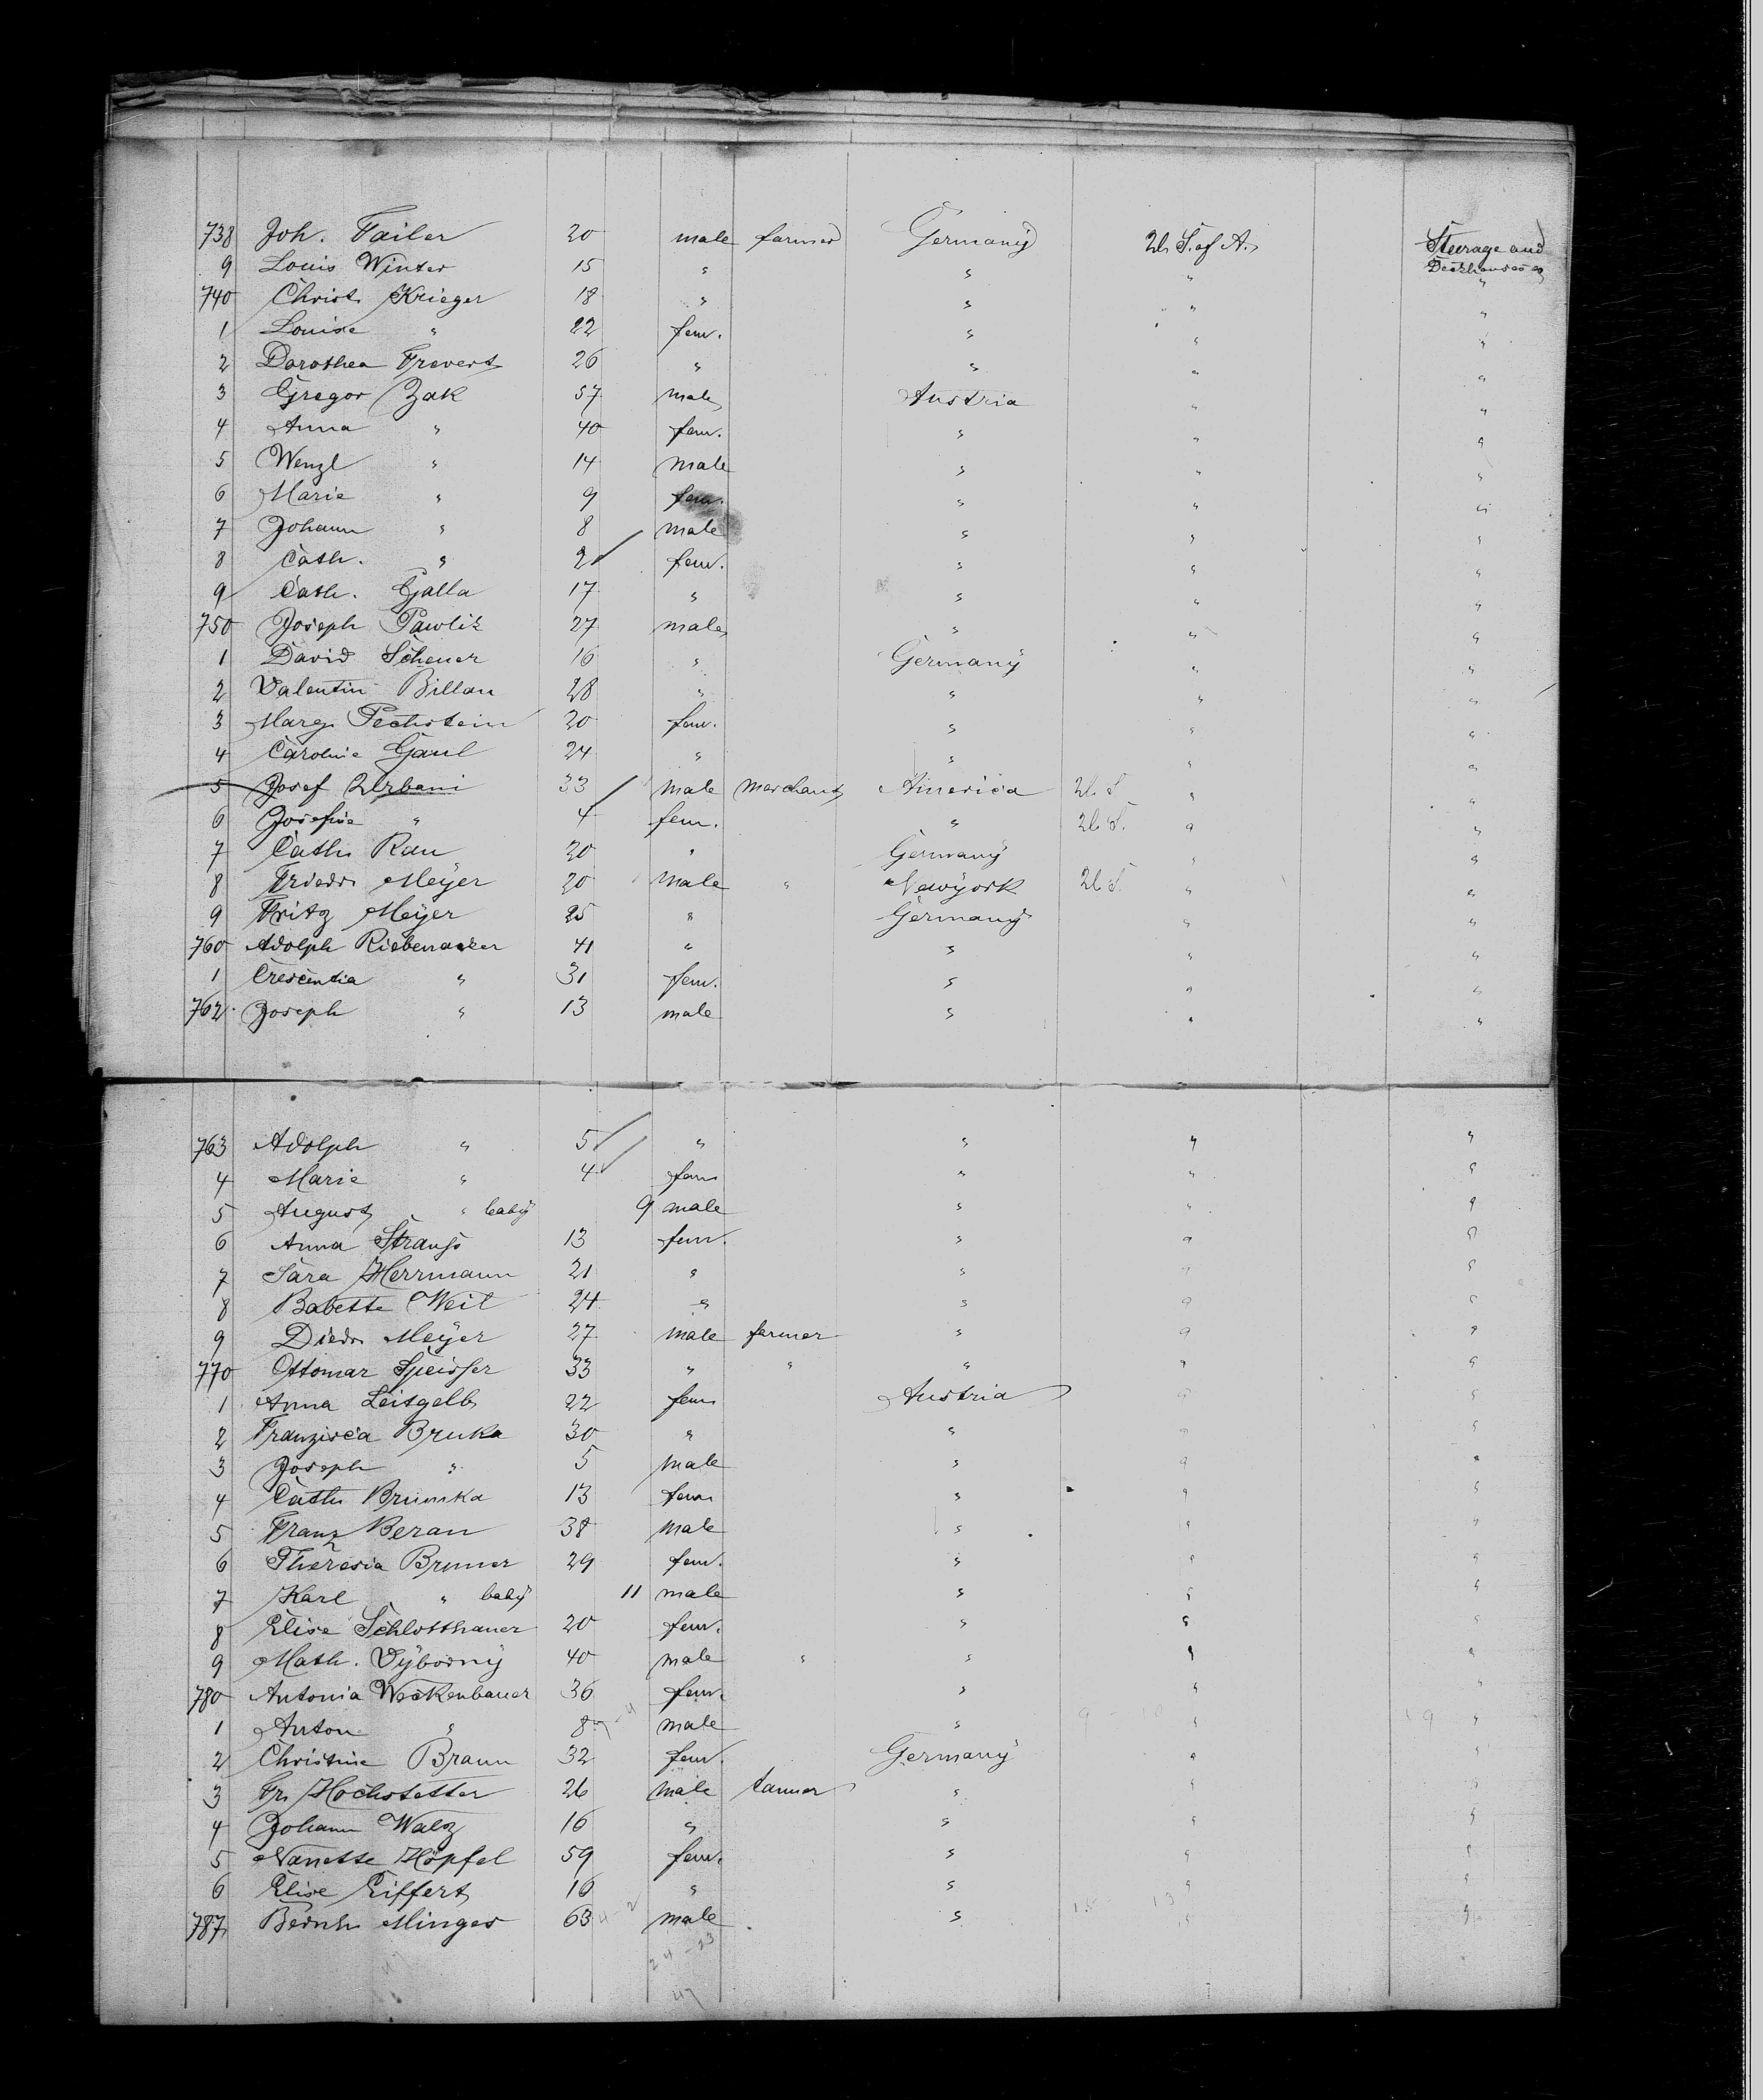 738 Joh. Failer 20 male farmer Germany U. S. of A. Steerage and
9 Louis Winter 15 " " " Deckhouses
740 Christ. Krieger 18 " " " "
1 Louise " 22 fem. " " "
2 Dorothea Frevert 26 " " " "
3 Gregor Zak 57 male Austria " "
4 Anna " 40 fem. " " "
5 Wenzl " 14 male " " "
6 Marie " 9 fem. " " "
7 Johann " 8 male " " "
8 Cath. " 2 fem. " " "
9 Cath. Galla 17 " " " "
750 Joseph Pawlik 27 male " " "
1 David Scheuer 16 " Germany " "
2 Valentin Billan 28 " " " "
3 Marg. Pechstein 20 fem. " " "
4 Caroline Gaul 24 " " " "
5 Josef Urbani 33 male merchant America U. S. " "
6 Josefine " 4 fem. " U. S. " "
7 Cath. Rau 20 " Germany " "
8 Friedr. Meÿer 20 male " Newÿork U. S. " "
9 Fritz Meÿer 25 " Germany " "
760 Adolph 41 " " " "
1 Crescentia " 31 fem. " " "
762 Joseph " 13 male " " "
763 Adolph " 5 " " " "
4 Marie " 4 fem. " " "
5 August " baby 9 male " " "
6 Anna Strauß 13 fem. " " "
7 Sara Herrmann 21 " " " "
8 Babette Weil 24 " " " "
9 Diedr. Meÿer 27 male farmer " " "
770 Ottomar Speisser 33 " " " " "
1 Anna Leitgelb 22 fem. Austria " "
2 Franzisca Bruka 30 " " " "
3 Joseph " 5 male " " "
4 Cath. Brumka 13 fem. " " "
5 Franz Beran 38 male " " "
6 Theresia Brunner 29 fem. " " "
7 Karl " baby 11 male " " "
8 Elise Schlotthauer 20 fem. " " "
9 Math. Výborný 40 male " " " "
780 Antonia Weckenbauer 36 fem. " " "
1 Anton " 8 male " " "
2 Christine Braun 32 fem. Germany " "
3 Fr. Hochstetter 26 male tanner " " "
4 Johann Walz 16 " " " "
5 Nanette Höpfel 59 fem. " " "
6 Elise Eiffert 16 " " " "
787 Bernh. Minges 63 male " " "
24-23
47